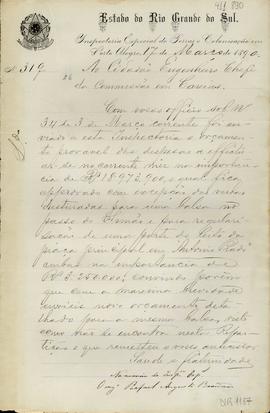 Estado do Rio Grande do Sul.
Inspectoria Especial de Terras e Colonisação em
Porto Alegre, 17 de Março de 1890.
N. 319
Ao Cidadão Engenheiro Chefe
da Commissão em Caxias.
Com vosso officio sob Nº
34 de 3 de Março corrente foi en-
viado a esta Inspectoria o orçamento
provavel das despezas a effectu-
ar-se no corrente mez na importan-
cia de
approvado com excepção das verbas
destinadas para uma balsa no
passo do Simão e para regulari-
sação de uma parte do leito da
praça principal em Antonio Prado
ambas na importancia de
convindo porém
que com a maxima brevidade
envieis novo orçamento deta-
lhado para a mesma balsa, visto
como não se encontra nesta Repar-
tição o que remetteu o vosso antecessor
Saude e fraternidade